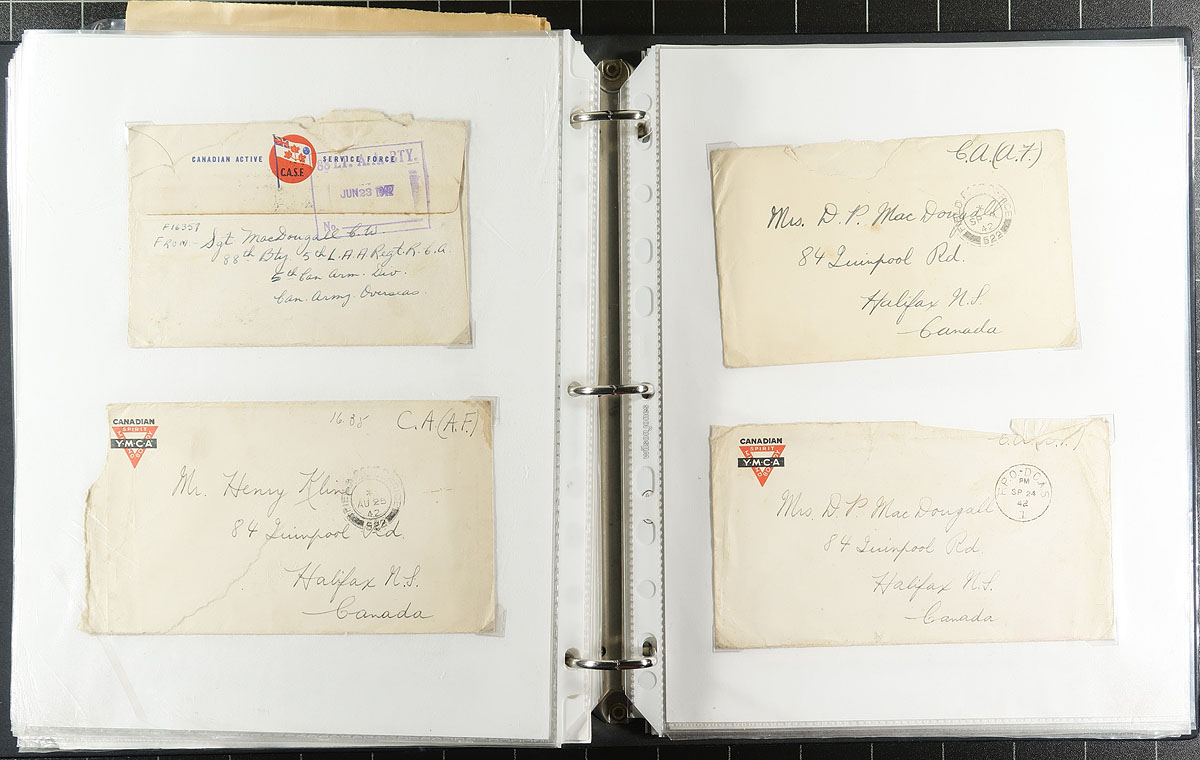 CANADIAN ACTIVE SERVICE FORCE
C.A.S.F.
88 LT. A.A. BTY.
JUN 23 1942
No.
F16357
FROM:- Sgt MacDougall C.W.
88th Bty. 5th L.A.A Regt. R.C.A.
5th Can. Arm. Div.
Can. Army Overseas.
CANADIAN
SPIRIT
Y·M·C·A
16-35
C.A.(A.F.)
Mr. Henry Kline
84 Quinpool Rd
Halifax N.S.
Canada
AU 25
42
522
C.A.(A.F)
Mrs. D. P. MacDougall
84 Quinpool Rd.
Halifax N.S.
Canada
42
522
wilson jones
CANADIAN
SPIRIT
Y·M·C·A
Mrs D P MacDougall
84 Quinpool Rd
Halifax N.S.
Canada
PM
SP 24
42
1